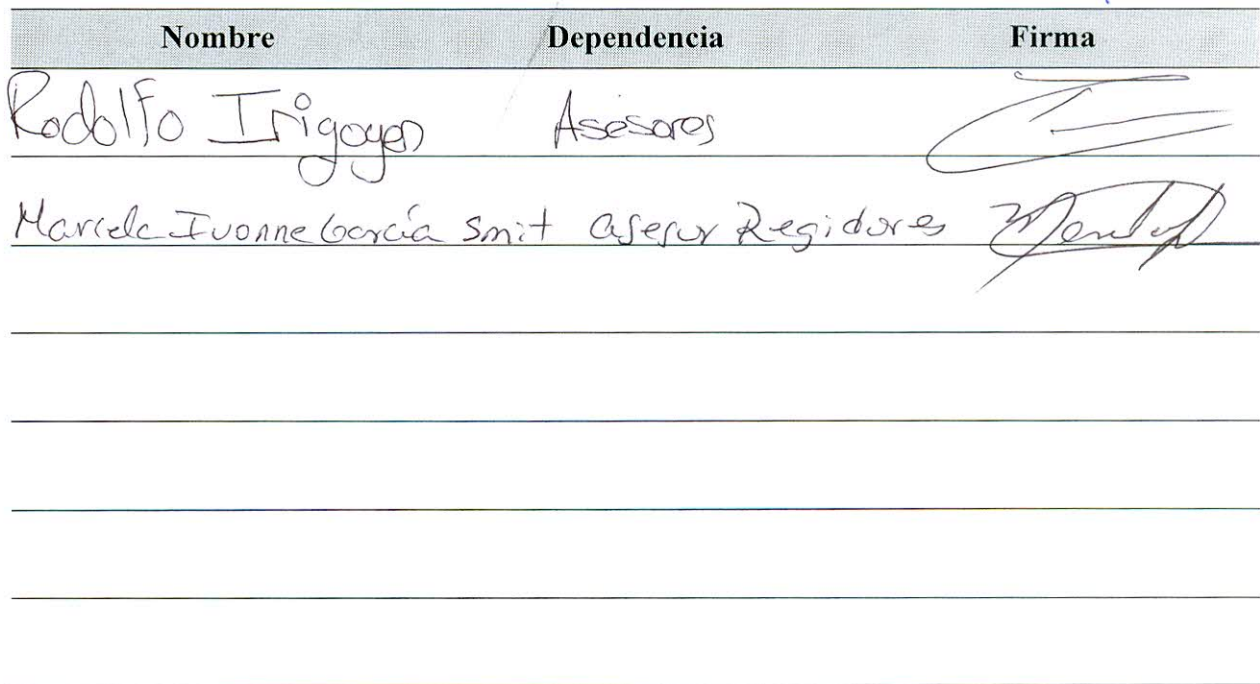 Nombre Dependencia Firma
Rodolfo Irigoyen Asesores
Marcela Ivonne García Smit asesor Regidores